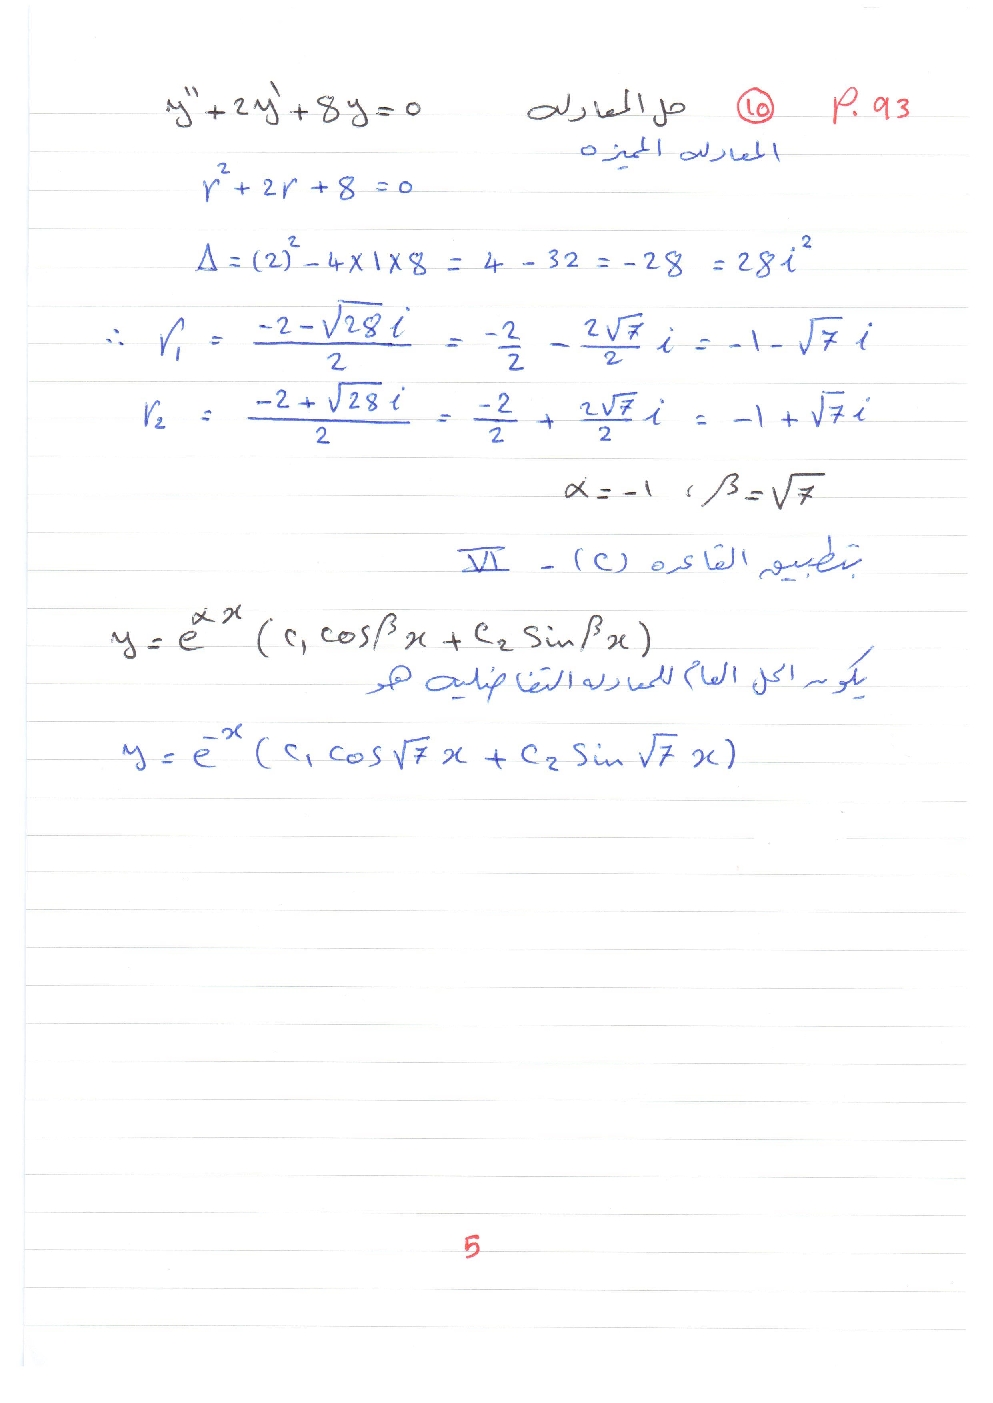 P. 93 ⑩ حل المعادلة y'' + 2y' + 8y = 0
المعادلة المميزة
r² + 2r + 8 = 0
Δ = (2)² - 4 × 1 × 8 = 4 - 32 = -28 = 28i²
∴ r₁ = (-2 - √28 i)/2 = -2/2 - (2√7)/2 i = -1 - √7 i
r₂ = (-2 + √28 i)/2 = -2/2 + (2√7)/2 i = -1 + √7 i
α = -1 ، β = √7
بتطبيق القاعدة (C) - VI
y = e^{αx} (c₁ cos βx + c₂ sin βx)
يكون الحل العام للمعادلة التفاضلية هو
y = e^{-x} (c₁ cos √7 x + c₂ sin √7 x)
5